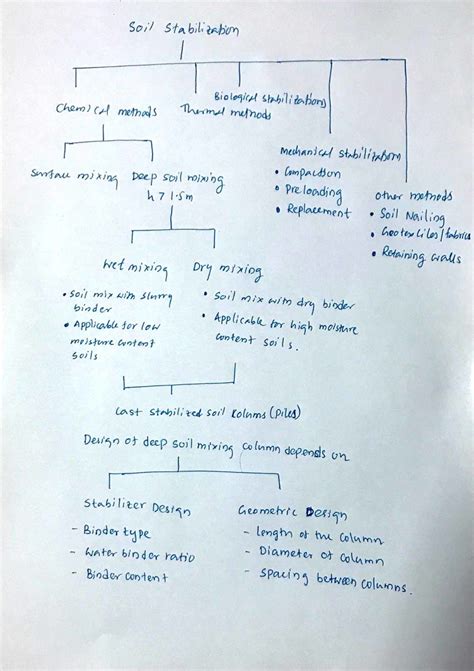 Soil Stabilization
Chemical methods
Thermal methods
Biological stabilizations
Mechanical stabilization
• Compaction
• Preloading
• Replacement
other methods
• Soil Nailing
• Geotextiles/fabrics
• Retaining walls
Surface mixing
Deep soil mixing
h > 1.5m
Wet mixing
• Soil mix with slurry
binder
• Applicable for low
moisture content
soils
Dry mixing
• Soil mix with dry binder
• Applicable for high moisture
content soils.
Last stabilized soil Kolums (Piles)
Design of deep soil mixing column depends on
Stabilizer Design
- Binder type
- Water binder ratio
- Binder content
Geometric Design
- Length of the column
- Diameter of column
- Spacing between columns.